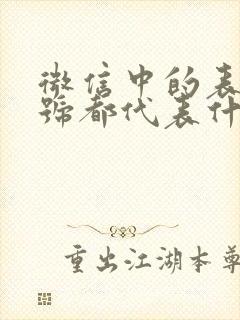 微信中的表
号都代表什
重出江湖本尊